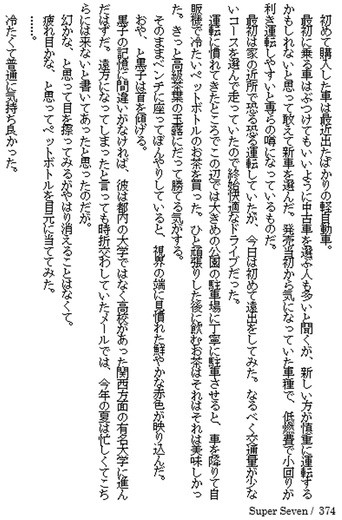 初めて購入した車は最近出たばかりの軽自動車。
最初に乗る車はぶつけてもいいように中古車を選ぶ人も多いと聞くが、新しい方が慎重に運転する
かもしれないと思って敢えて新車を選んだ。発売当初から気になっていた車種で、低燃費で小回りが
利き運転しやすいと専らの噂になっているものだ。
最初は家の近所で恐る恐る運転していたが、今日は初めて遠出をしてみた。なるべく交通量が少な
いコースを選んで走っていたので終始快適なドライブだった。
運転に慣れてきたところでこの辺では大きめの公園の駐車場に丁寧に駐車させると、車を降りて自
販機で冷たいペットボトルのお茶を買った。ひと頑張りした後に飲むお茶はそれはそれは美味しかっ
た。きっと高級茶葉の玉露にだって勝てる気がする。
そのままベンチに座ってぼんやりしていると、視界の端に見慣れた鮮やかな赤色が映り込んだ。
おや、と黒子は首を傾げる。
黒子の記憶に間違いがなければ、彼は都内の大学ではなく高校があった関西方面の有名大学に進ん
だはずだ。遠方になってしまったと言っても時折交わしていたメールでは、今年の夏は忙しくてこち
らには来ないと書いてあったと思ったのだが。
幻かな、と思って目を擦ってみるがやはり消えることはなくて。
疲れ目かな、と思ってペットボトルを目元に当ててみた。
……。
冷たくて普通に気持ち良かった。
Super Seven / 374